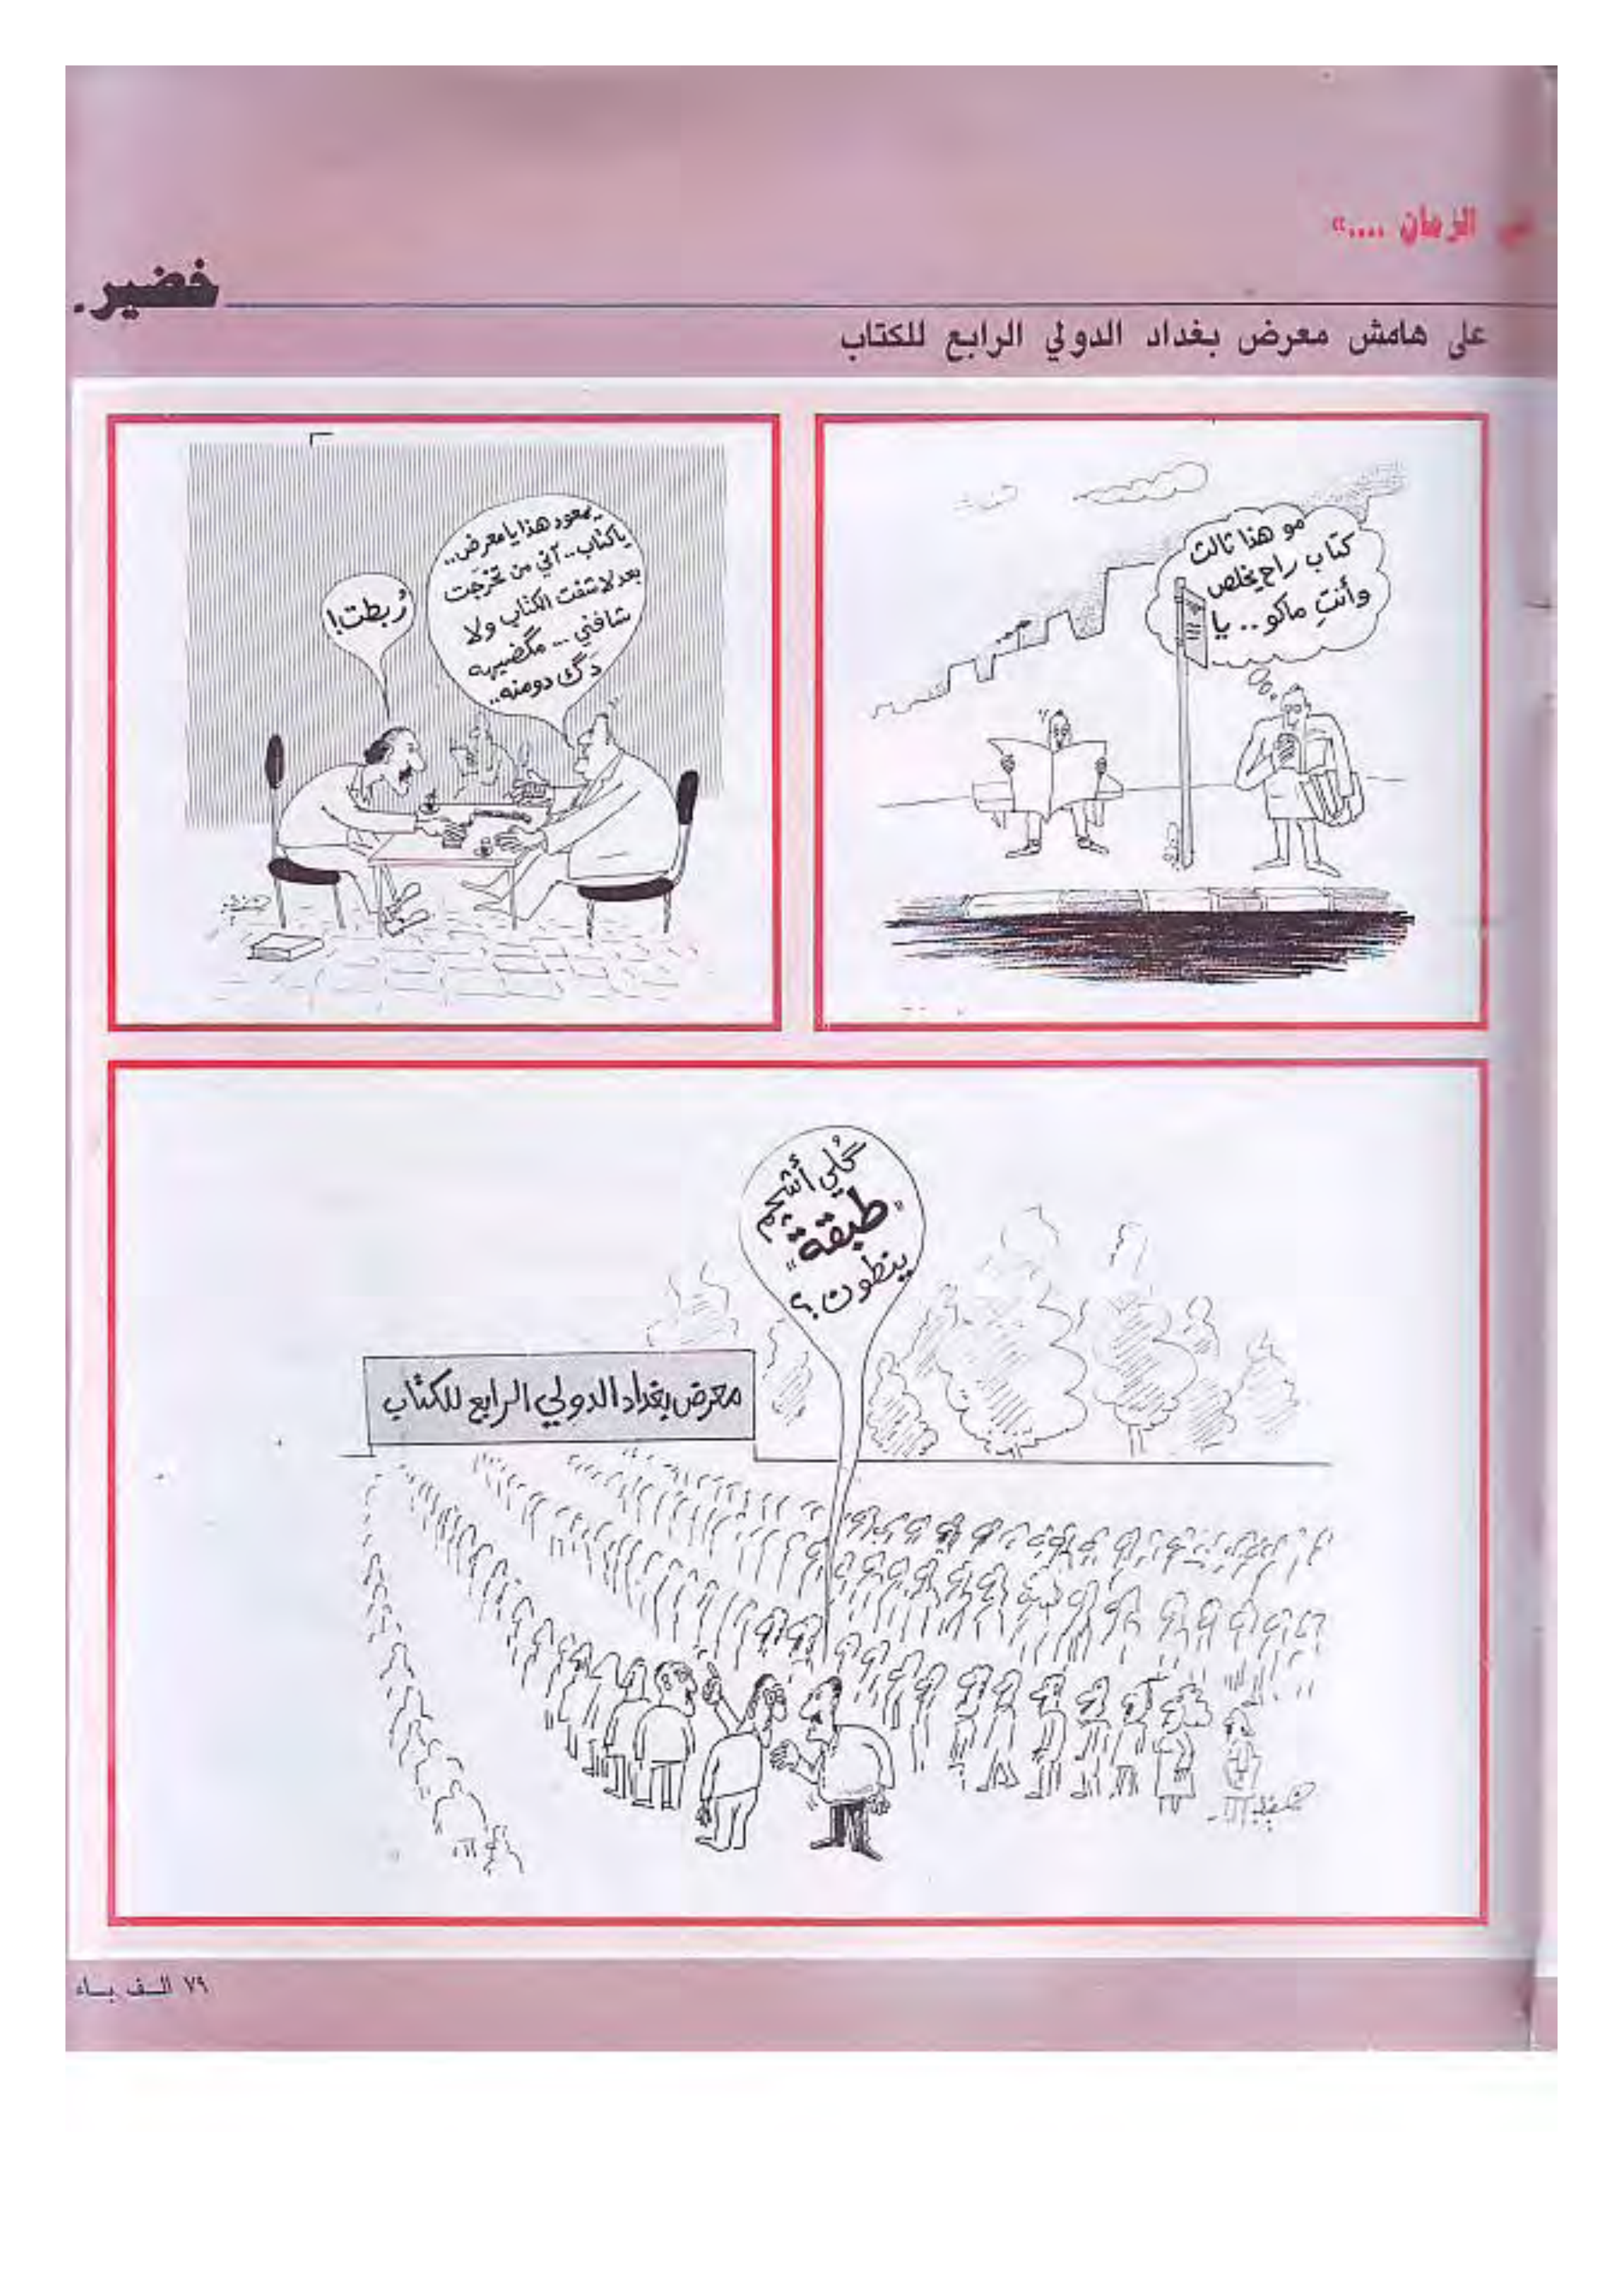 الزمان ....»
خضير.
على هامش معرض بغداد الدولي الرابع للكتاب
مو هذا ثالث
كتاب راح يخلص
وأنتِ ماكو .. يا
يمعود هذا يا معرض..
يا كتاب.. آني من تخرّجت
بعد لا شفت الكتاب ولا
شافني ... مگضيهه
دَگ دومنه..
رُبطت!
گُلي أشكم
"طبقة"
ينطون؟
معرض بغداد الدولي الرابع للكتاب
خضير
٧٩ الـف بـاء